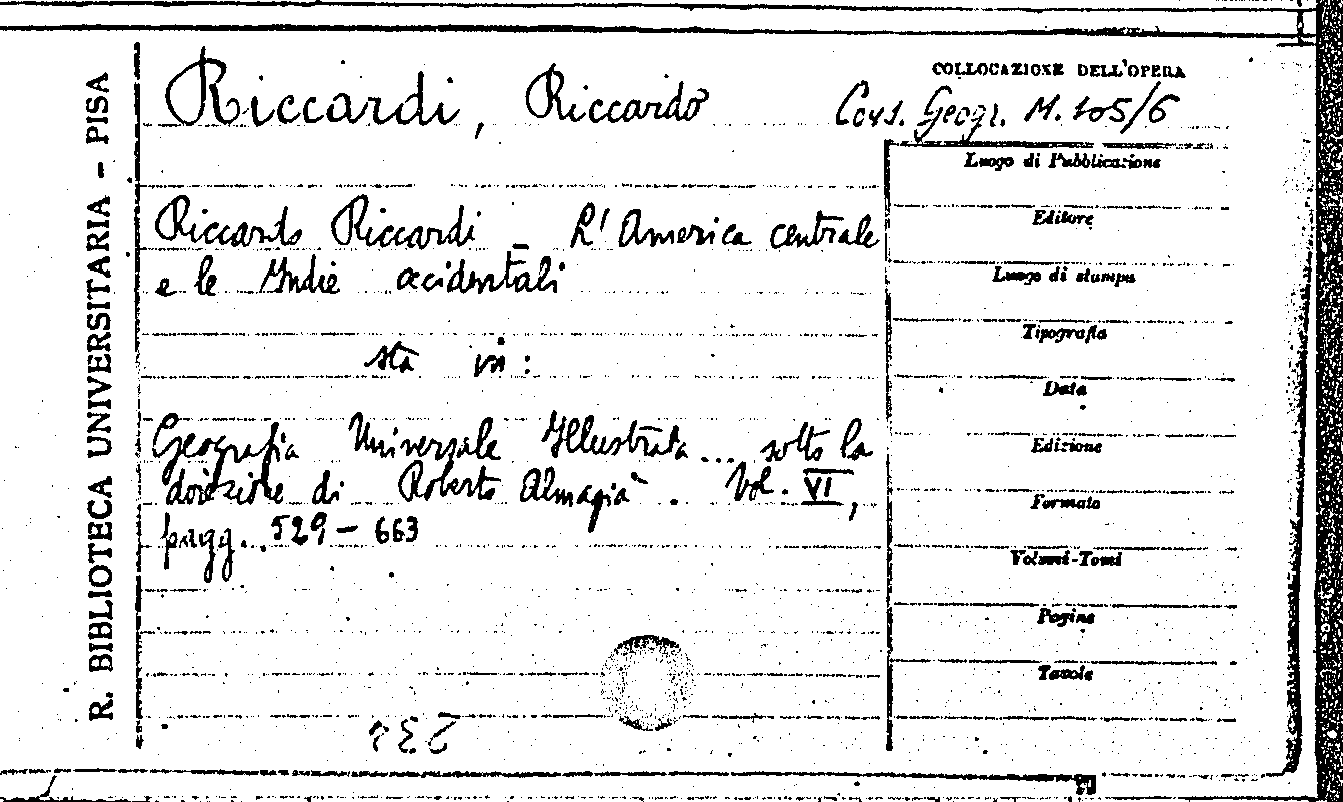 R. BIBLIOTECA UNIVERSITARIA - PISA
Riccardi, Riccardo
COLLOCAZIONE DELL'OPERA
Cons. Geogr. M. 105/6
Riccardo Riccardi - L'America centrale
e le Indie occidentali
sta in:
Geografia Universale Illustrata... sotto la
direzione di Roberto Almagià. Vol. VI,
pagg. 529 - 663
Luogo di Pubblicazione
Editore
Luogo di stampa
Tipografia
Data
Edizione
Formato
Volumi-Tomi
Pagine
Tavole